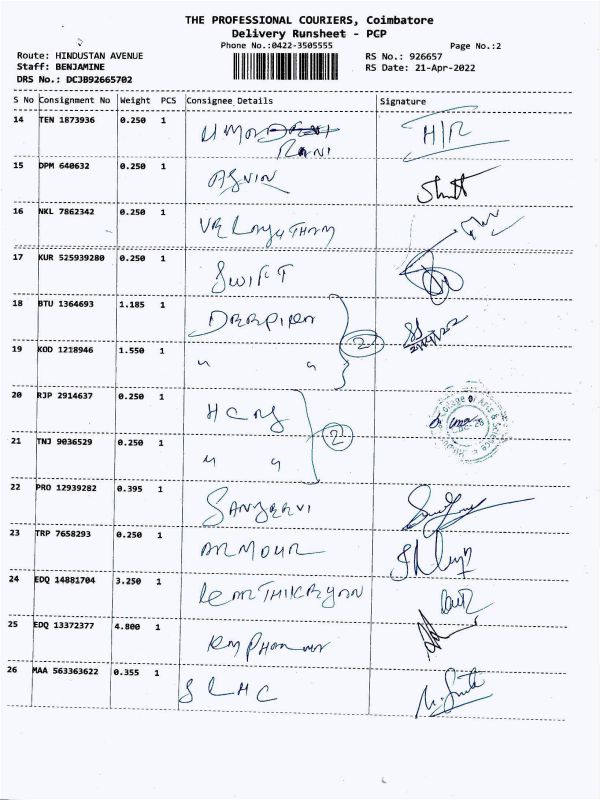 THE PROFESSIONAL COURIERS, Coimbatore
Delivery Runsheet - PCP
Phone No.:0422-3505555 Page No.:2
Route: HINDUSTAN AVENUE RS No.: 926657
Staff: BENJAMINE RS Date: 21-Apr-2022
DRS No.: DCJB92665702
S No Consignment No Weight PCS Consignee Details Signature
14 TEN 1873936 0.250 1
RANI
15 DPM 640632 0.250 1 ASVIN
16 NKL 7862342 0.250 1
17 KUR 525939280 0.250 1 SWIFT
18 BTU 1364693 1.185 1 2
19 KOD 1218946 1.550 1 " "
20 RJP 2914637 0.250 1 2
21 TNJ 9036529 0.250 1 " "
22 PRO 12939282 0.395 1 SANJEEVI
23 TRP 7658293 0.250 1 ARMOUR
24 EDQ 14881704 3.250 1
25 EDQ 13372377 4.800 1
26 MAA 563363622 0.355 1